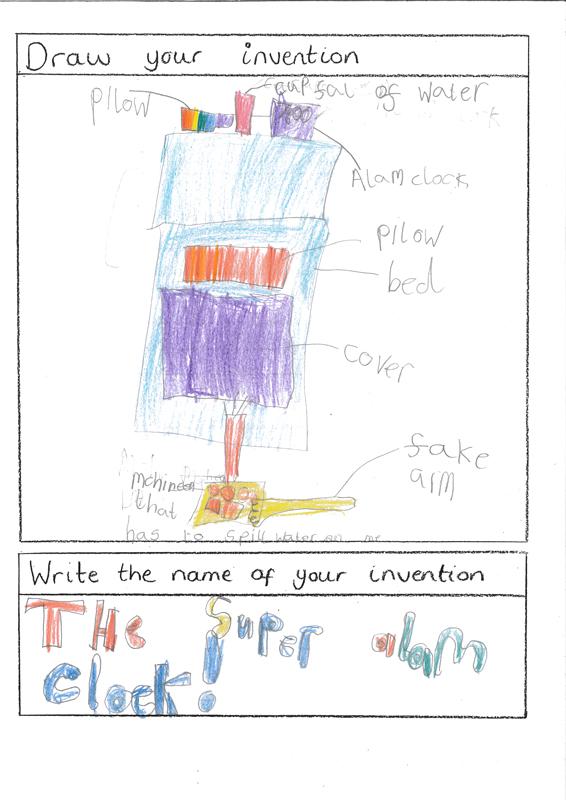 Draw your invention
pilow
cup ful of water
Alam clock
pilow
bed
cover
fake
arm
mchine
that
has to spill water on me
Write the name of your invention
The Super alam
Clock!